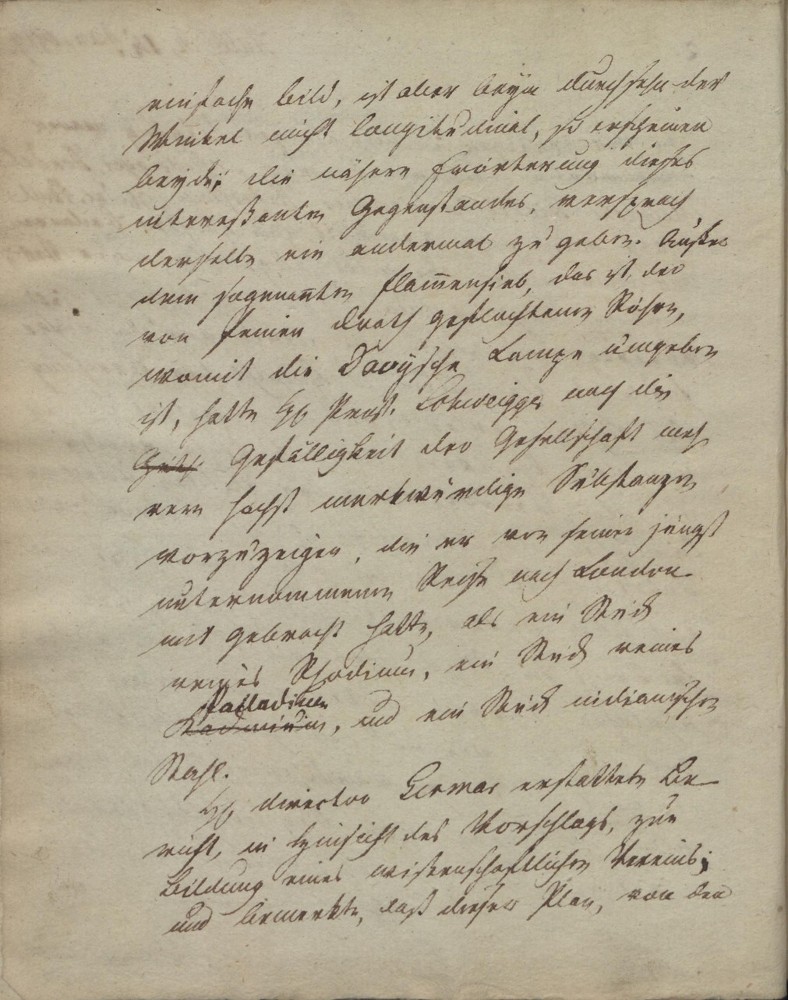 einfache Bild, ist aber beym durchsehn der
Winkel nicht longitudinal, so erscheinen
beyde; die nähere Erörterung dieses
interessanten Gegenstandes, versprach
derselbe ein andermal zu geben. Außer
dem sogenannten Flam̄ensieb, das ist der
von feinen Drath geflochtenen Röhre,
womit die Davysche Lampe umgeben
ist, hatte Hr Prof. Schweigger noch die
Gefälligkeit der Gesellschaft meh
rere höchst merkwürdige Substanzen
vorzuzeigen, die er von seiner jüngst
unternommenen Reise nach London
mit gebracht hatte, als ein Stück
reines Rhodium, ein Stück reines
Palladium
Kadmium, und ein Stück indianischen
Stahl.
Hr director Germar erstattete Be
richt, in Hinsicht des Vorschlags, zur
Bildung eines wissenschaftlichen Vereins;
und bemerkte, daß dieser Plan, von den